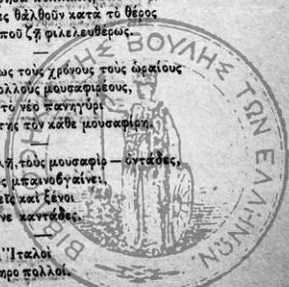 ες θάλθουν κατὰ τὸ θέρος
ποῦ ζῇ φιλελευθέρως.
ως τοὺς χρόνους τοὺς ὡραίους
ολλοὺς μουσαφιρέους,
τὸ νέο πανηγύρι
της τὸν κάθε μουσαφίρη.
τοὺς μουσαφίρ — ὀντάδες,
ς μπαινοβγαίνει,
εῖς καὶ ξένοι
νε καντάδες.
Ἰταλοὶ
ηρο πολλοί.
ΤΗΣ ΒΟΥΛΗΣ ΤΩΝ ΕΛΛΗΝΩΝ
ΒΙΒ